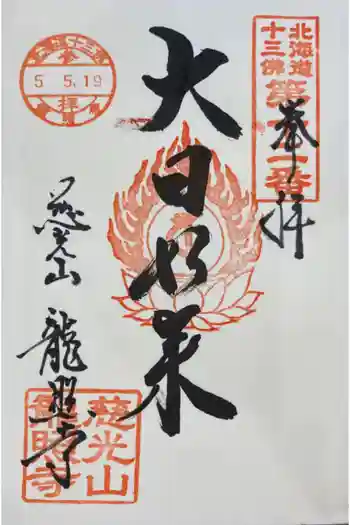 北海道
十三佛
第十二番
奉拝
大日如来
5 5.19
慈光山
龍照寺
慈光山
龍照寺